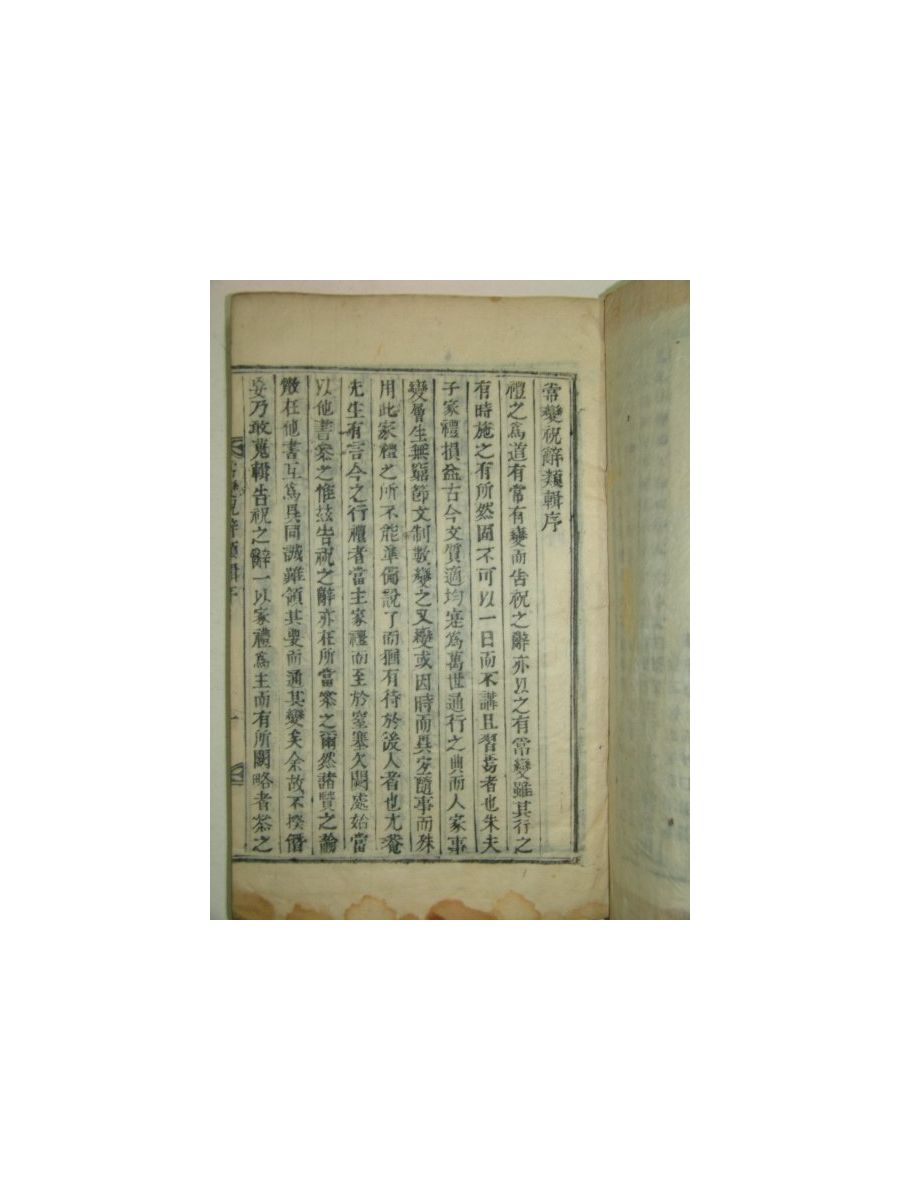 常變祝辭類輯序
禮之爲道有常有變而告祝之辭亦以之有常變雖其行之
有時施之有所然固不可以一日而不講且習焉者也朱夫
子家禮損益古今文質適均寔爲萬世通行之典而人家事
變層生無窮節文制數變之又變或因時而異宜隨事而殊
用此家禮之所不能準備說了而猶有待於後人者也尤菴
先生有言今之行禮者當主家禮而至於窒塞欠闕處始當
以他書叅之惟玆告祝之辭亦在所當叅之爾然諸賢之論
散在他書互爲異同誠難領其要而通其變矣余故不揆僭
妄乃敢蒐輯告祝之辭一以家禮爲主而有所闕略者叅之
祝辭類輯序
一